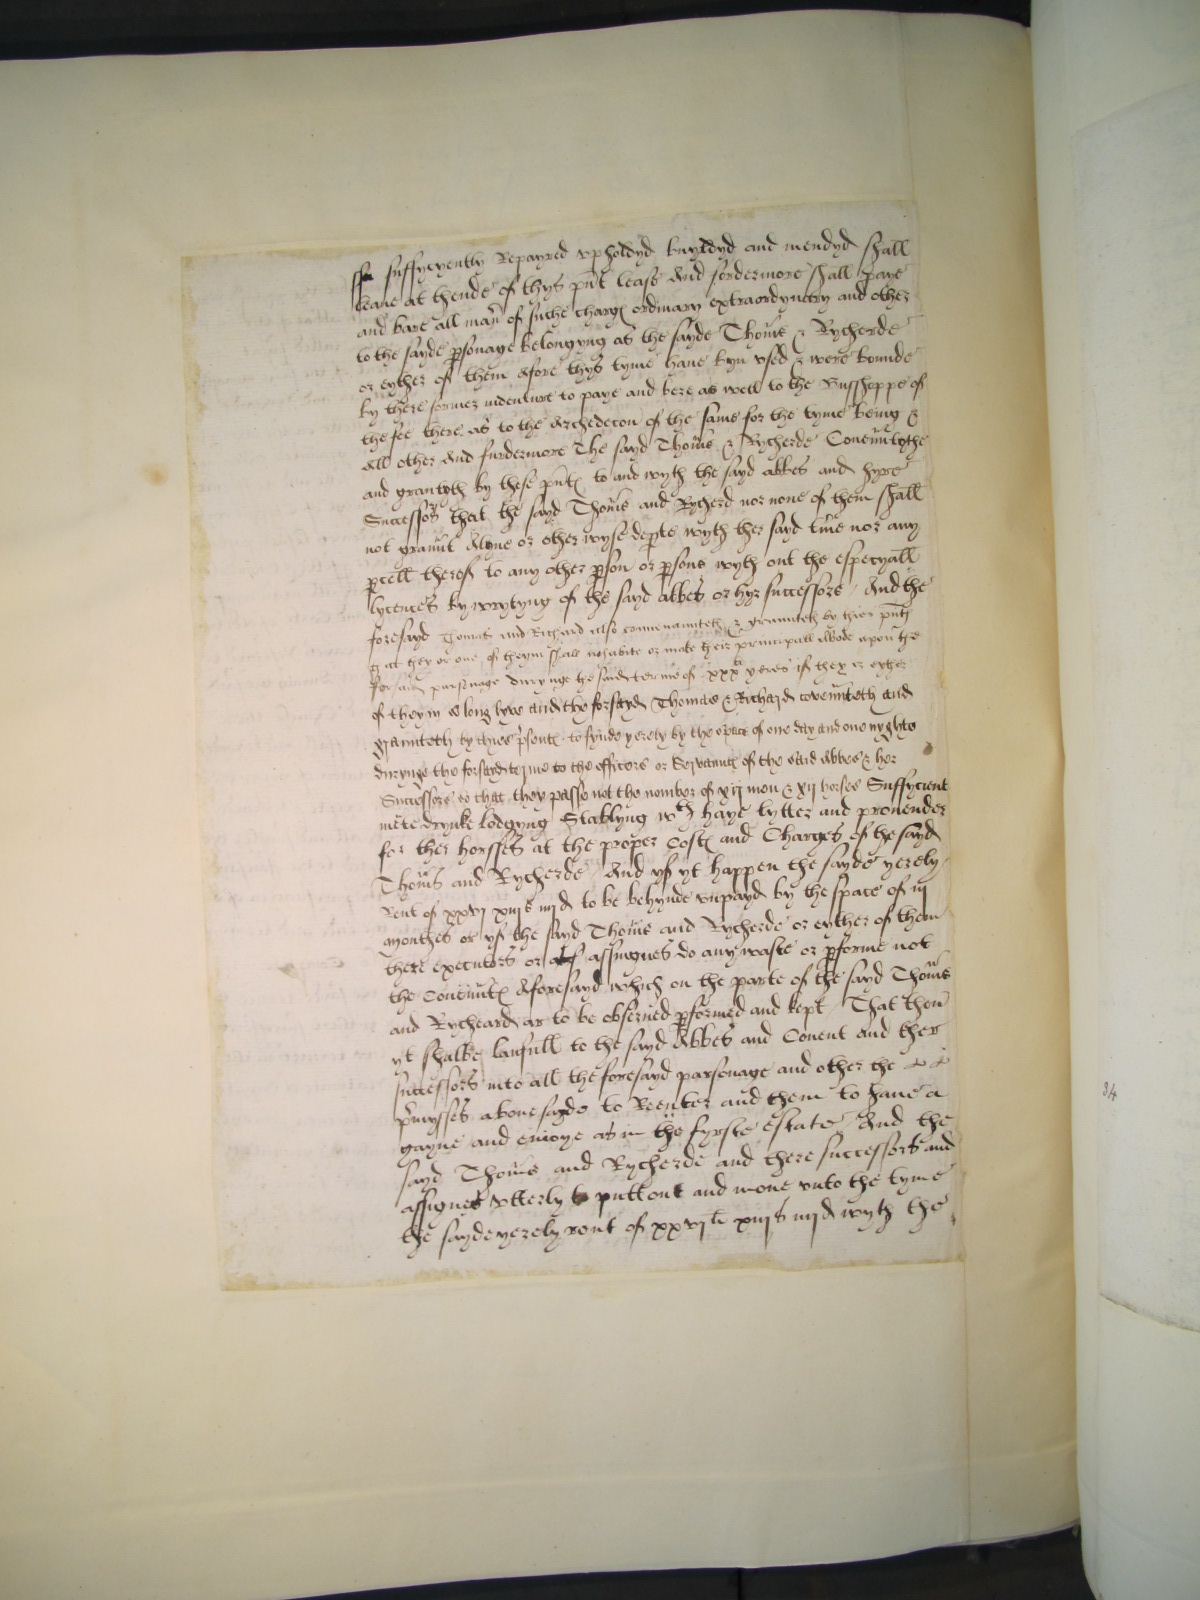 suffycyently Repayred vpholdyd buyldyd and mendyd shall
leave at thende of thys pñt lease And fordermore shall paye
and bare all mañ of suche charg ordinary extraordynary and other
to the sayde psonage belongyng as the sayde Thom̃s & Rycherde
or eyther of them Afore thys tyme haue byn vsed & were bounde
by there former indenture to paye and bere as well to the Busshoppe of
the see there as to the Archedecon of the same for the tyme being &
All other And furdermore The sayd Thom̃s & Rycherde Couenn̄tythe
and grantyth by these pñt to and wyth the sayd abbes and hyre
Successors that the sayd Thom̃s and Rycherd nor none of them shall
not graunt Alyne or other wyse depte wyth ther sayd tme nor any
pcell therof to any other pson or psons wyth out the especyall
lycences by wrytyng of the sayd abbes or hyr successors / And the
foresayd Thomas and Richard also conuenaunteth & graunteth by thies pñts
that they or one of theym shall inhabite or make their principall abode apon the
forsaid parsonage duryinge the said terme of xxxti yeres if they or eyther
of theym so long lyve and the forsayd Thomas & Richard couennteth and
graunteth by thies psente to fynde yerely by the space of one day and one nyghte
durynge the forsayd terme to the officers or Servaunts of the said Abbes & her
Successors so that they passe not the nomber of xij men & xij horses Suffycient
mete drynke lodgyng Stablyng wth haye lytter and prouender
for ther horsses at the proper Cost and Charges of the sayd
Thom̃s and Rycherde / And yf yt happen the sayde yerely
Rent of xxvi xiijs iiijd to be behynde vnpayd by the space of iij
monthes or yf the sayd Thom̃s and Rycherde or eyther of them
there executors or assingnes do any waste or pforme not
the Couennt Aforesayd which on the parte of the sayd Thom̃s
and Rycheard ar to be obserued pformed and kept / That then
yt shalbe laufull to the sayd Abbes and Couent and ther
successors into all the foresayd parsonage and other the
pmysses abouesayde to Reenter and them to haue a
gayne and enioye as in the fyrste estate / And the
sayd Thom̃s and Rycherde and there successors and
assignes vtterly to putt out and moue vnto the tyme
the sayde yerely rent of xxvili xiijs iiijd wyth the
84